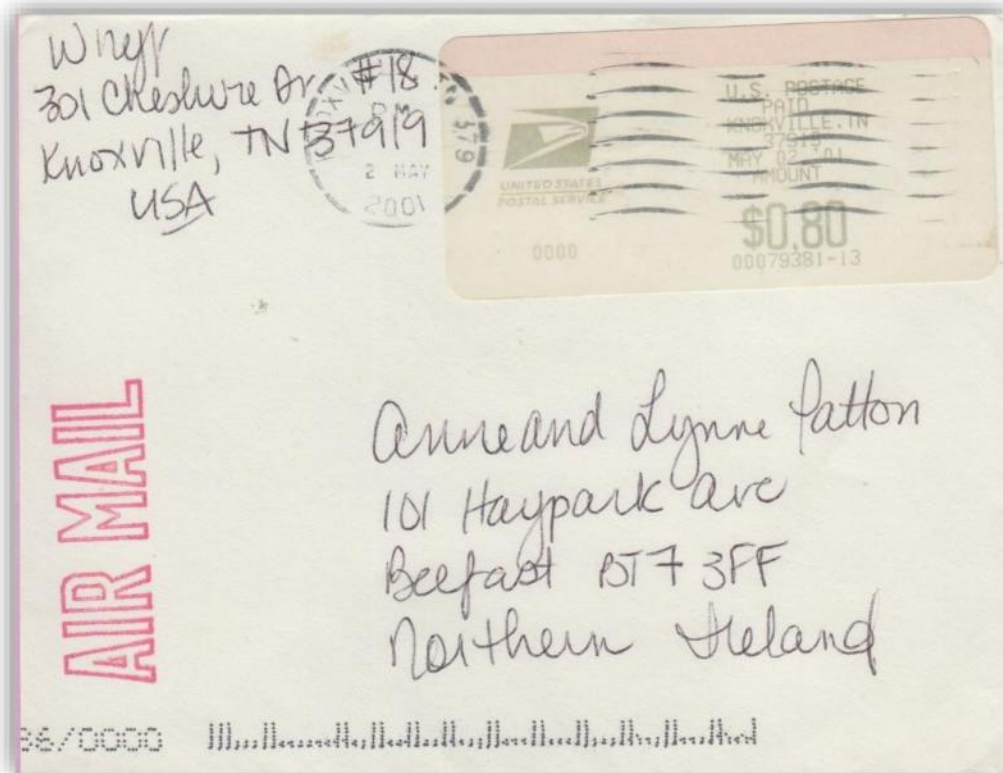 301 Cheshire Dr. #18
Knoxville, TN 37919
USA
PM
2 MAY
2001
379
UNITED STATES
POSTAL SERVICE
0000
U.S. POSTAGE
PAID
KNOXVILLE, TN
37919
MAY 02, 01
AMOUNT
$0.80
00079381-13
AIR MAIL
Anne and Lynne Patton
101 Haypark Ave
Belfast BT7 3FF
Northern Ireland
/0000